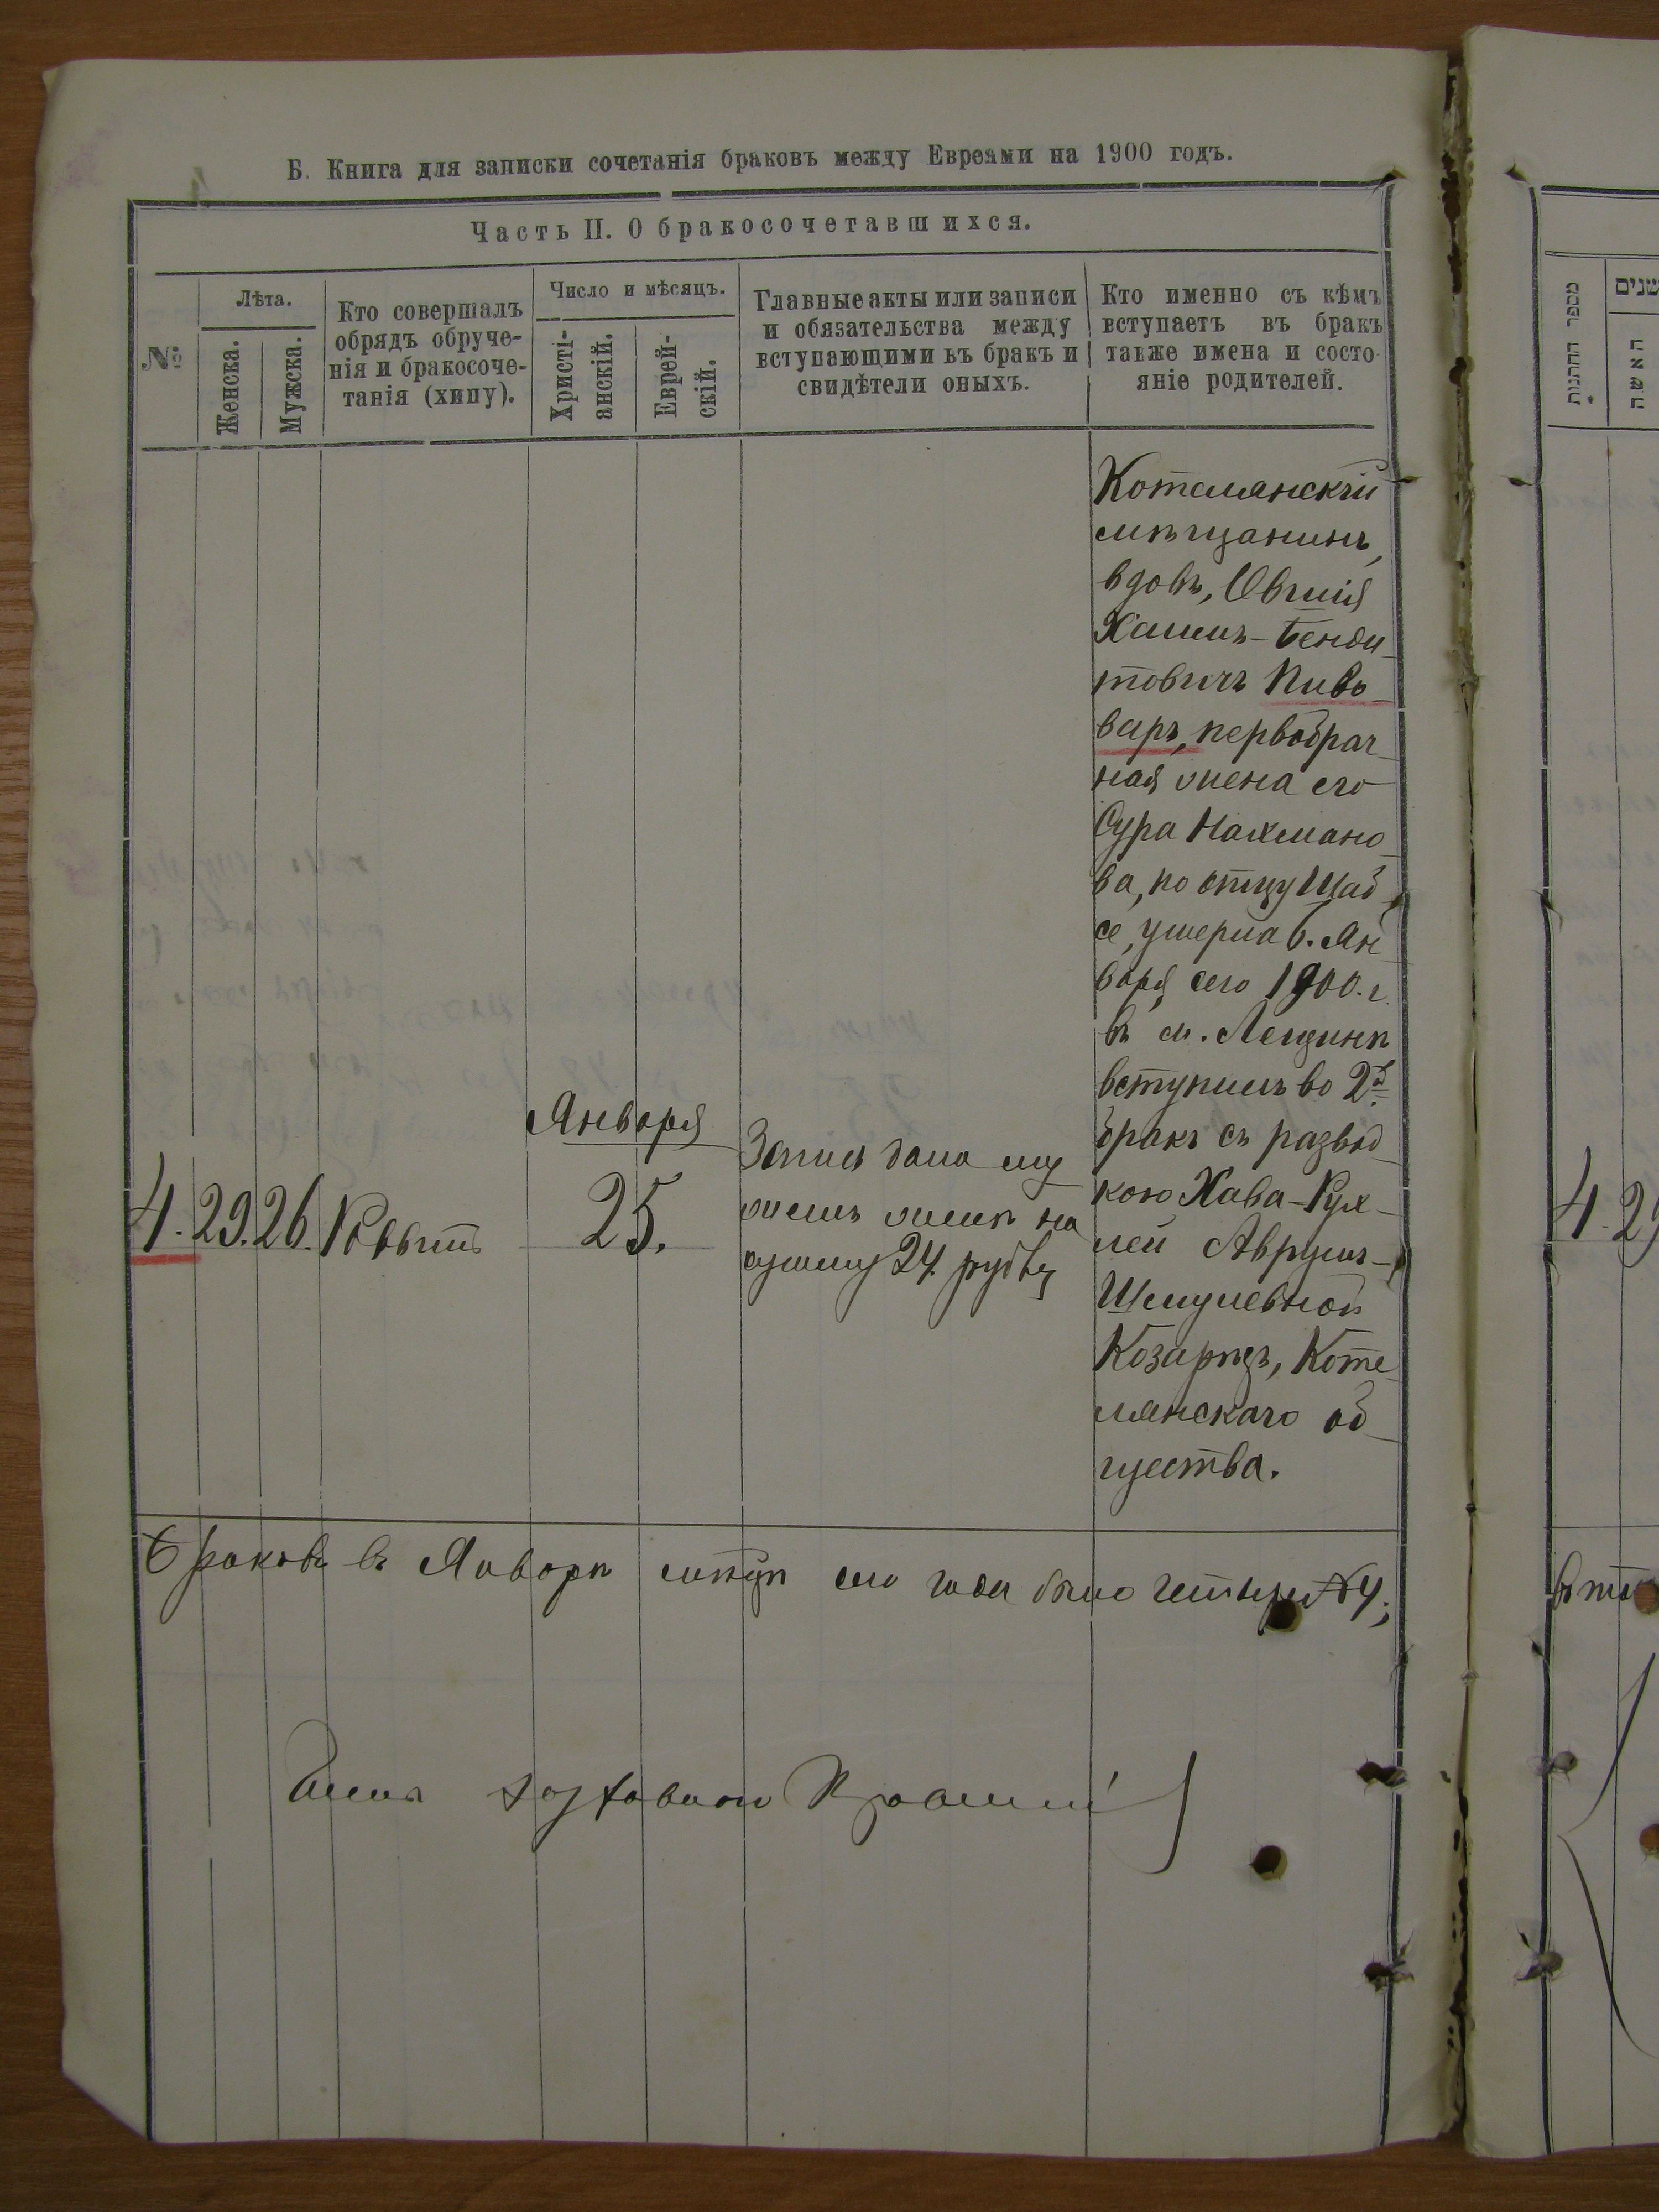 Б. Книга для записки сочетанія браковъ между Евреями на 1900 годъ.
Часть II. О бракосочетавшихся.
№
Лѣта.
Женска.
Мужска.
Кто совершалъ
обрядъ обруче-
нія и бракосоче-
танія (хипу).
Число и мѣсяцъ.
Христі-
анскій.
Еврей-
скій.
Главные акты или записи
и обязательства между
вступающими въ бракъ и
свидѣтели оныхъ.
Кто именно съ кѣмъ
вступаетъ въ бракъ
также имена и состо-
яніе родителей.
4. 29. 26. Раввинъ
Января
25.
Запись дана му
жемъ женѣ на
сумму 24 рубля
Котелянскій
мѣщанинъ,
вдовъ, Овшія
Хаимъ-Бенди
товичъ Пиво-
варъ, первобрач-
ная жена его
Сура Нахмано-
ва, по отцу Шаб-
се, умерла 6. Ян
варя сего 1900. г.
въ м.
вступилъ во 2й
бракъ съ развод-
кою Хава-Рух-
лей Аврумъ-
Шмулевной
Козарѣзъ, Коте
лянскаго об-
щества.
Браковъ въ Январѣ мѣсяцѣ сего года было четыре №4;
מספר החתנות
שנים
האשה
4. 29